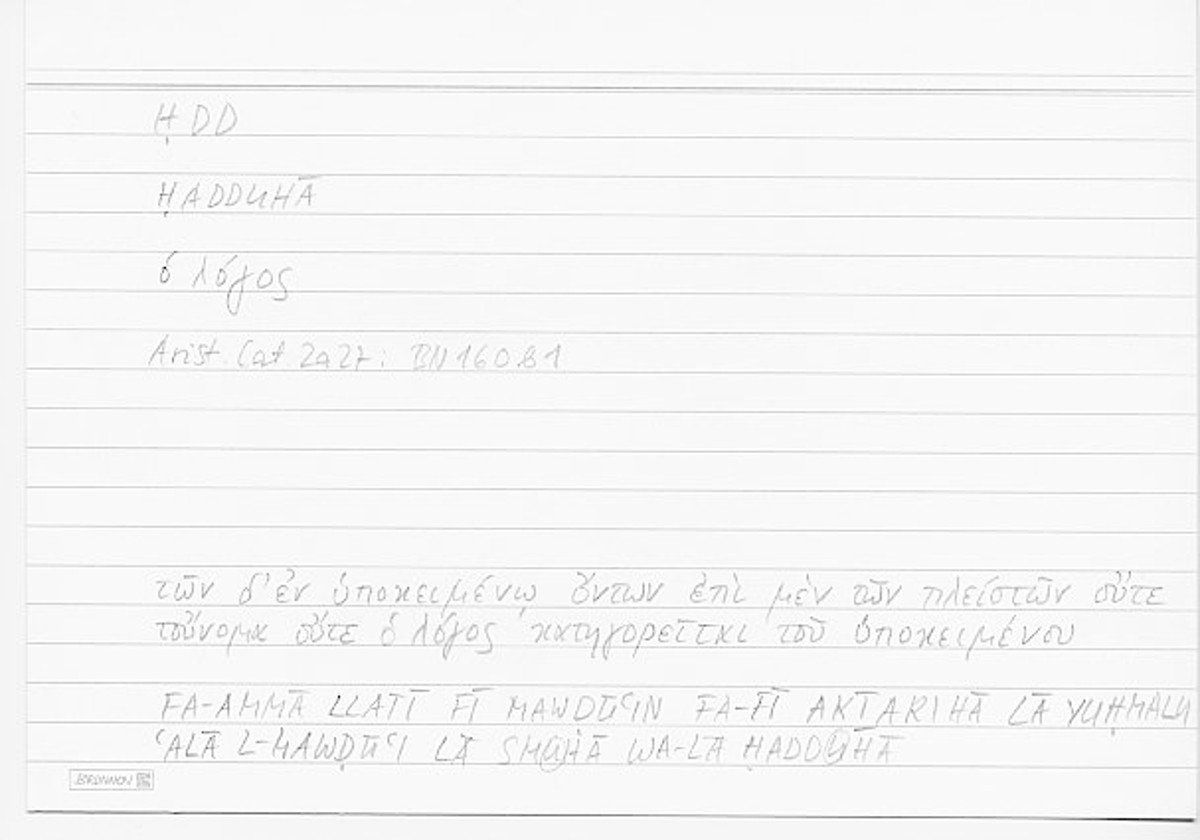 ḤDD
ḤADDUHĀ
ὁ λόγος
Arist. Cat. 2a27: BN160.81
τῶν δ' ἐν ὑποκειμένῳ ὄντων ἐπὶ μὲν τῶν πλείστων οὔτε
τοὔνομα οὔτε ὁ λόγος κατηγορεῖται τοῦ ὑποκειμένου
FA-AMMĀ LLATĪ FĪ MAWḌŪʿIN FA-FĪ AKṮARIHĀ LĀ YUḤMALU
ʿALĀ L-MAWḌŪʿI LĀ SMUHĀ WA-LĀ ḤADDUHĀ
BRUNNEN